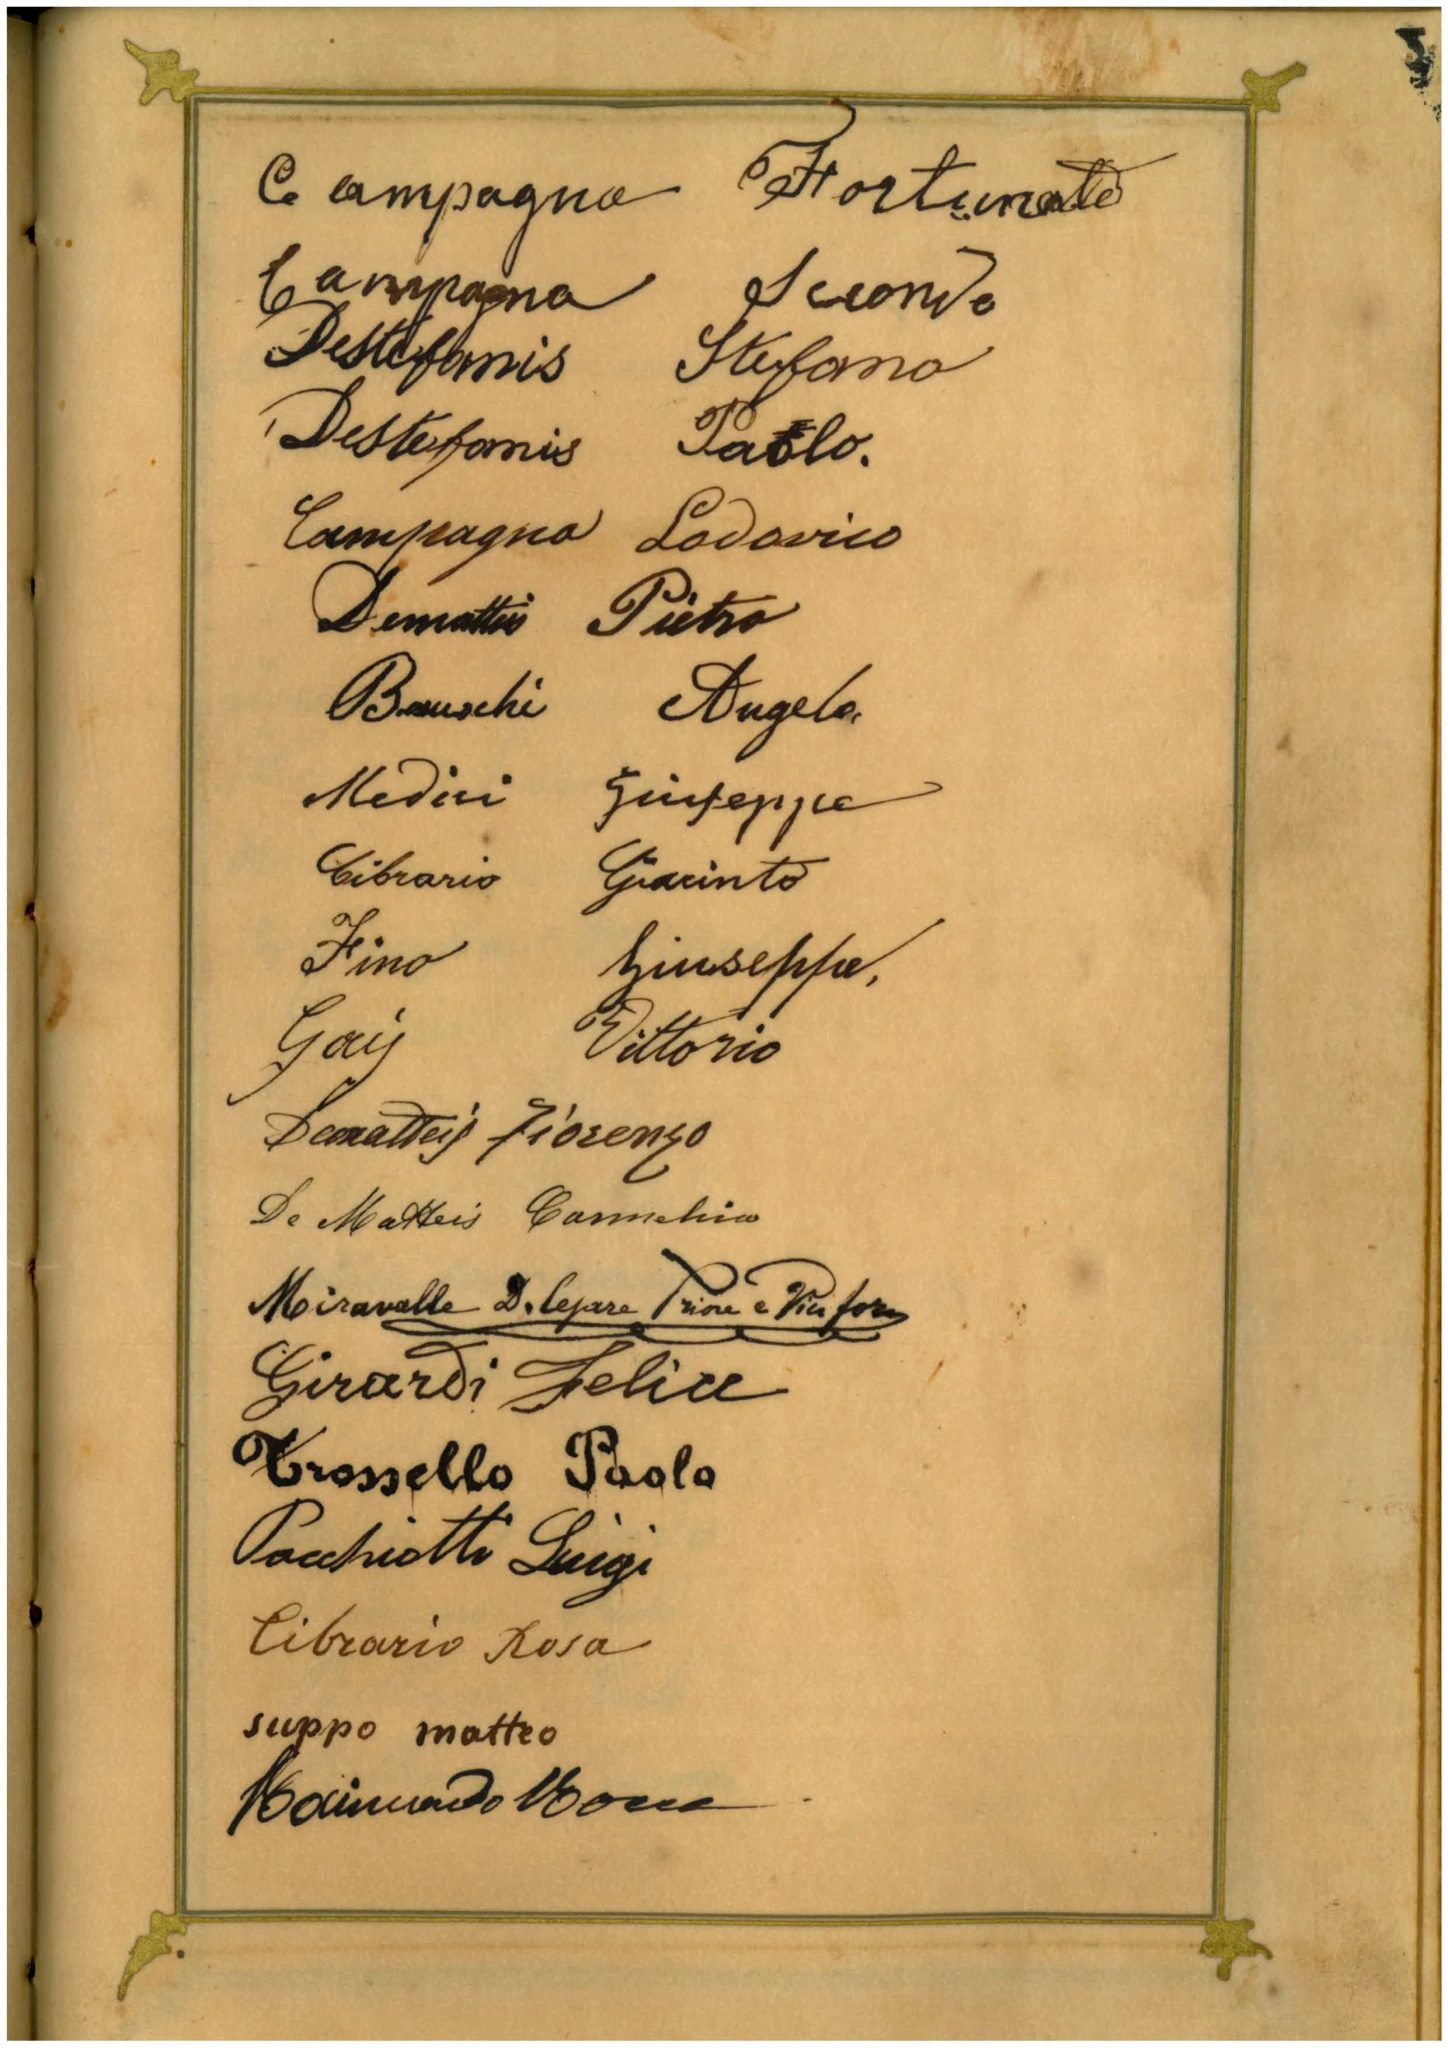 Campagna Fortunato
Campagna Secondo
Destefanis Stefano
Destefanis Paolo.
Campagna Lodovico
Dematteis Pietro
Angelo
Medici Giuseppe
Cibrario Giacinto
Fino Giuseppe,
Gays Vittorio
Dematteis Fiorenzo
De Matteis
Miravalle D. Cesare Priore e Vic. for.
Girardi Felice
Trossello Paolo
Pacchiotti Luigi
Cibrario Rosa
suppo matteo
Raimondo